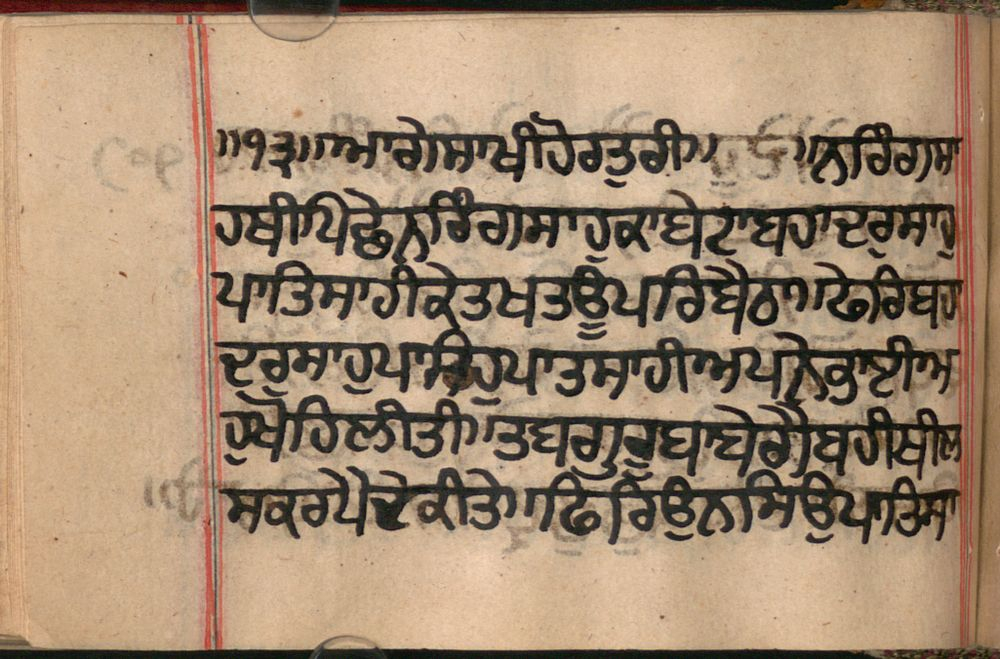 ॥੧੩॥ਆਗੇਸਾਖੀਹੋਰਤੁਰੀ॥ ॥ਨਰਿੰਗਸਾ
ਹਥੀਪਿਛੇਨਰਿੰਗਸਾਹੁਕਾਬੇਟਾਬਹਾਦਰੁਸਾਹੁ
ਪਾਤਿਸਾਹੀਕੇਤਖਤਊਪਰਿਬੈਠਾ॥ਫੇਰਿਬਹਾ
ਦਰੁਸਾਹੁਪਾਸਿਹੁਪਾਤਸਾਹੀਅਪਨੇਭਾਈਅ
ਹੁਖੋਹਿਲੀਤੀ॥ਤਬਗੁਰੂਬਾਬੇਗੈਬਹੀਥੀਲ
ਸਕਰਪੈਦੇਕੀਤੇ॥ਫਿਰਿਉਨਾਸਿਉਪਾਤਿਸਾ